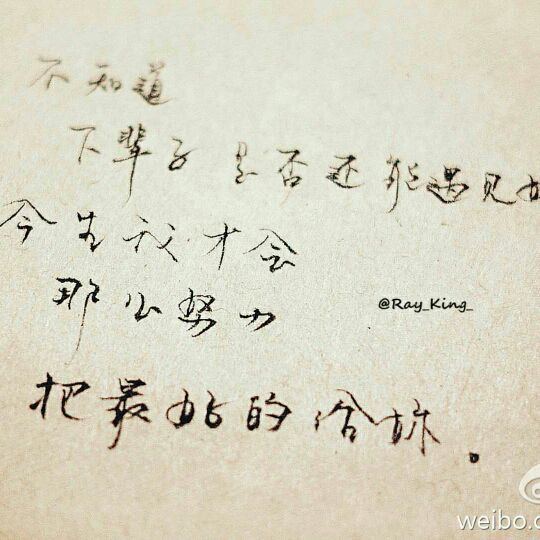 不知道
下辈子是否还能遇见
今生我才会
那么努力
@Ray_King_
把最好的给你。
weibo.c